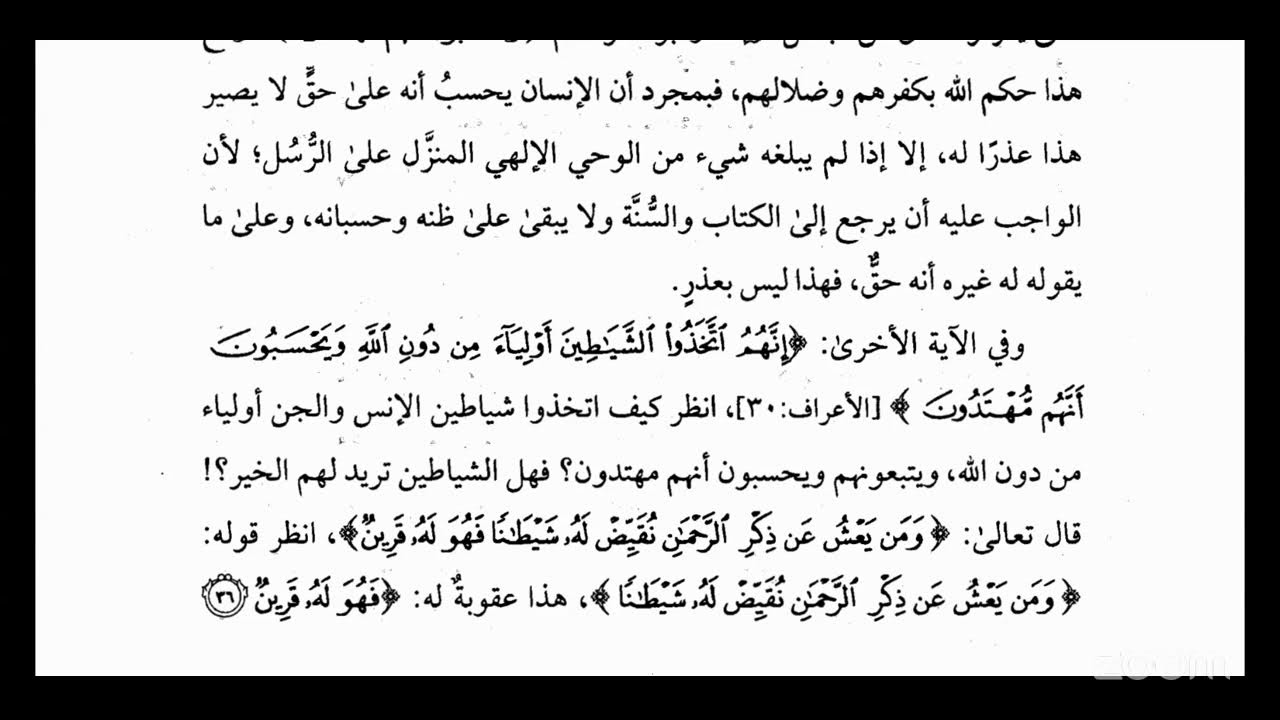 هذا حكم الله بكفرهم وضلالهم، فبمجرد أن الإنسان يحسبُ أنه علىٰ حقٍّ لا يصير
هذا عذرًا له، إلا إذا لم يبلغه شيء من الوحي الإلهي المنزَّل علىٰ الرُّسُل؛ لأن
الواجب عليه أن يرجع إلىٰ الكتاب والسُّنَّة ولا يبقىٰ علىٰ ظنه وحسبانه، وعلىٰ ما
يقوله له غيره أنه حقٌّ، فهذا ليس بعذرٍ.
وفي الآية الأخرىٰ: ﴿إِنَّهُمُ ٱتَّخَذُوا۟ ٱلشَّيَٰطِينَ أَوْلِيَآءَ مِن دُونِ ٱللَّهِ وَيَحْسَبُونَ
أَنَّهُم مُّهْتَدُونَ﴾ [الأعراف:٣٠]، انظر كيف اتخذوا شياطين الإنس والجن أولياء
من دون الله، ويتبعونهم ويحسبون أنهم مهتدون؟ فهل الشياطين تريد لهم الخير؟!
قال تعالىٰ: ﴿وَمَن يَعْشُ عَن ذِكْرِ ٱلرَّحْمَٰنِ نُقَيِّضْ لَهُۥ شَيْطَٰنًا فَهُوَ لَهُۥ قَرِينٌ﴾، انظر قوله:
﴿وَمَن يَعْشُ عَن ذِكْرِ ٱلرَّحْمَٰنِ نُقَيِّضْ لَهُۥ شَيْطَٰنًا﴾، هذا عقوبةٌ له: ﴿فَهُوَ لَهُۥ قَرِينٌ ٣٦
zoom